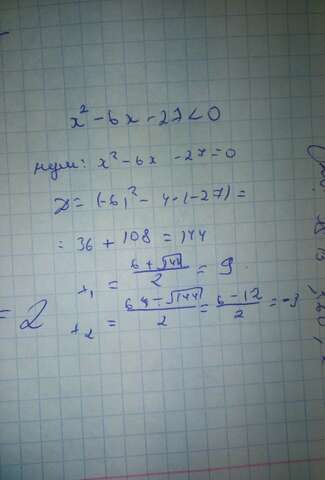 x² - 6x - 27 < 0
нули: x² - 6x - 27 = 0
D = (-6)² - 4 · (-27) =
= 36 + 108 = 144
x₁ = (6 + √144)/2 = 9
x₂ = (6 - √144)/2 = (6 - 12)/2 = -3
= 2